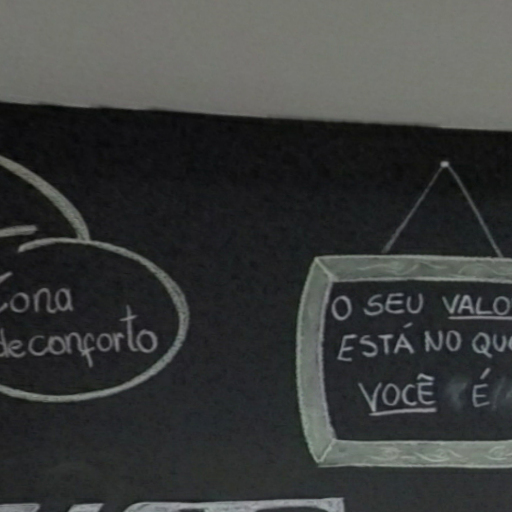 Zona
de conforto
O SEU VALO
ESTÁ NO QU
VOCÊ É